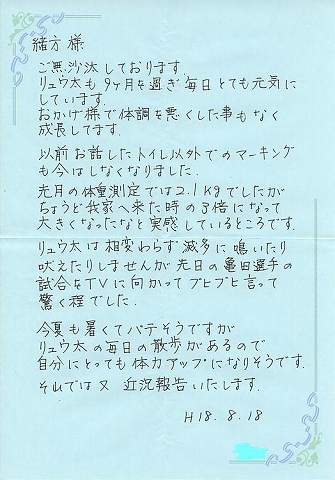 緒方様
ご無沙汰しております。
リュウ太も9ヶ月を過ぎ毎日とても元気に
しています。
おかげ様で体調を悪くした事もなく
成長してます。
以前お話したトイレ以外でのマーキング
も今はしなくなりました。
先月の体重測定では2.1kgでしたが
ちょうど我家へ来た時の3倍になって
大きくなったなと実感しているところです。
リュウ太は相変わらず滅多に鳴いたり
吠えたりしませんが先日の亀田選手の
試合をTVに向かってブヒブヒ言って
驚く程でした。
今夏も暑くてバテそうですが
リュウ太の毎日の散歩があるので
自分にとっても体力アップになりそうです。
それでは又 近況報告いたします。
H18.8.18